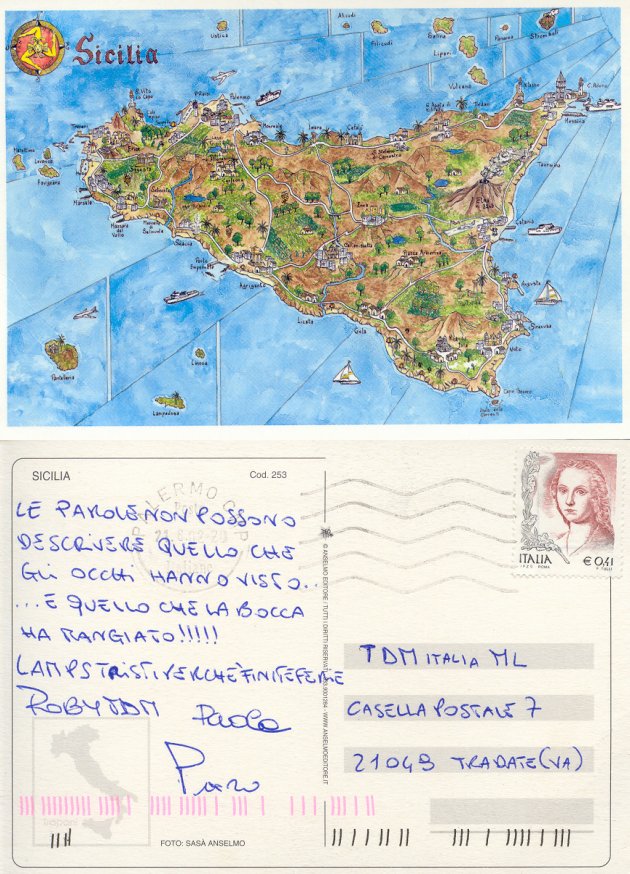 Sicilia
Ustica
Alicudi
Filicudi
Salina
Lipari
Panarea
Stromboli
Vulcano
S. Vito Lo Capo
Palermo
Cefalù
Milazzo
C. Peloro
Messina
Trapani
Marettimo
Levanzo
Favignana
Marsala
Mazara del Vallo
Sciacca
Porto Empedocle
Agrigento
Licata
Gela
Caltanissetta
Piazza Armerina
Enna
Etna
Taormina
Catania
Augusta
Siracusa
Noto
Capo Passero
Pantelleria
Linosa
Lampedusa
SICILIA
Cod. 253
PALERMO C.P.
LE PAROLE NON POSSONO
DESCRIVERE QUELLO CHE
GLI OCCHI HANNO VISTO..
...E QUELLO CHE LA BOCCA
HA MANGIATO!!!!!
LAMPS TRISTI PERCHÈ FINITE FERIE
ROBY TDM Paola
© ANSELMO EDITORE - TUTTI I DIRITTI RISERVATI
WWW.ANSELMOEDITORE.IT
ITALIA
€ 0,41
I.P.Z.S. ROMA
TDM ITALIA ML
CASELLA POSTALE 7
21049 TRADATE (VA)
Trapani
FOTO: SASÀ ANSELMO